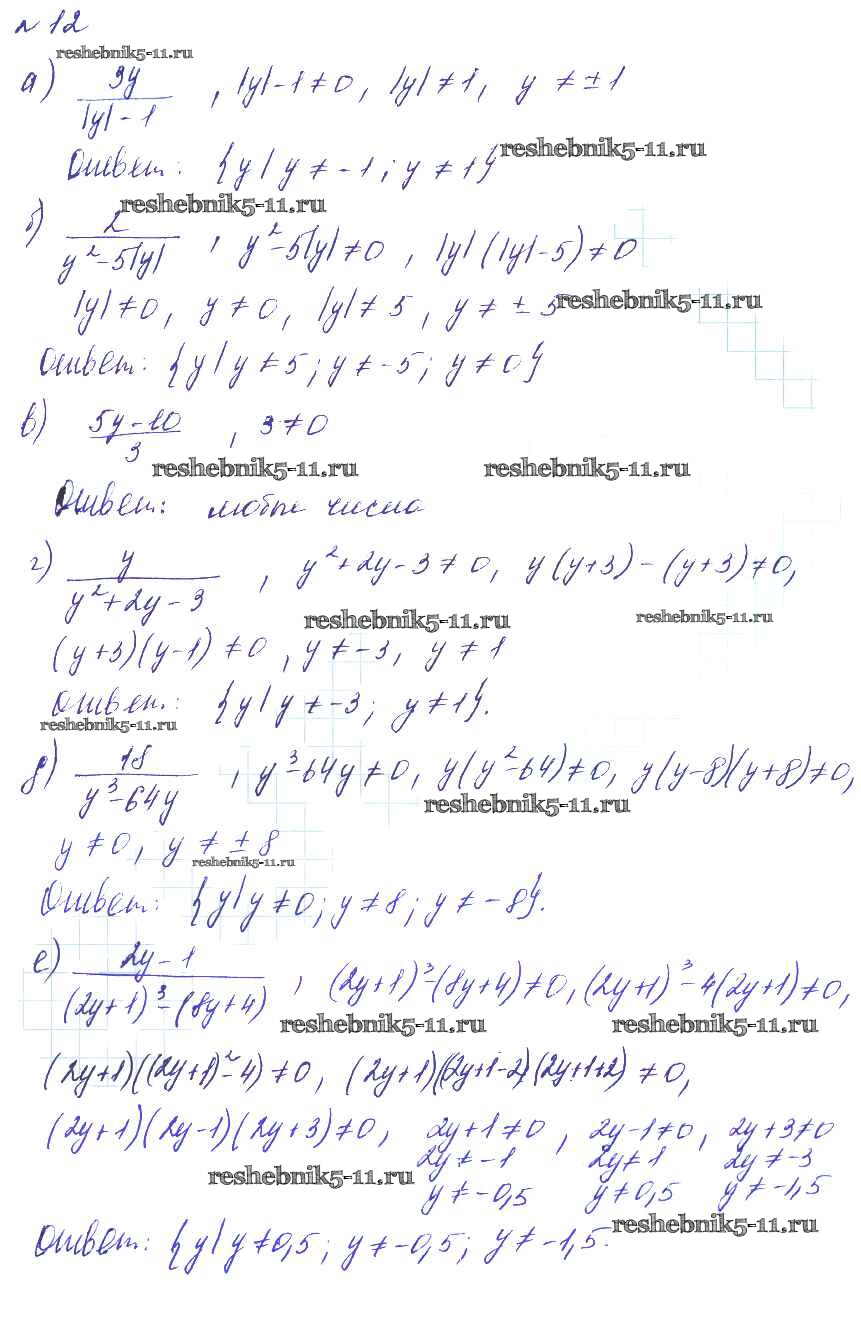 №12
reshebnik5-11.ru
а) 9y / |y|-1 , |y|-1≠0, |y|≠1, y≠±1
Ответ: {y|y≠-1; y≠1}
reshebnik5-11.ru
reshebnik5-11.ru
б) 2 / y²-5|y| , y²-5|y|≠0, |y|(|y|-5)≠0
|y|≠0, y≠0, |y|≠5, y≠±5
reshebnik5-11.ru
Ответ: {y|y≠5; y≠-5; y≠0}
в) 5y-10 / 3 , 3≠0
reshebnik5-11.ru reshebnik5-11.ru
Ответ: любые числа
г) y / y²+2y-3 , y²+2y-3≠0, y(y+3)-(y+3)≠0,
reshebnik5-11.ru reshebnik5-11.ru
(y+3)(y-1)≠0, y≠-3, y≠1
Ответ: {y|y≠-3; y≠1}.
reshebnik5-11.ru
д) 18 / y³-64y , y³-64y≠0, y(y²-64)≠0, y(y-8)(y+8)≠0,
reshebnik5-11.ru
y≠0, y≠±8
reshebnik5-11.ru
Ответ: {y|y≠0; y≠8; y≠-8}.
е) 2y-1 / (2y+1)³-(8y+4) , (2y+1)³-(8y+4)≠0, (2y+1)³-4(2y+1)≠0,
reshebnik5-11.ru reshebnik5-11.ru
(2y+1)((2y+1)²-4)≠0, (2y+1)(2y+1-2)(2y+1+2)≠0,
(2y+1)(2y-1)(2y+3)≠0, 2y+1≠0, 2y-1≠0, 2y+3≠0
2y≠-1 2y≠1 2y≠-3
reshebnik5-11.ru
y≠-0,5 y≠0,5 y≠-1,5
reshebnik5-11.ru
Ответ: {y|y≠0,5; y≠-0,5; y≠-1,5.